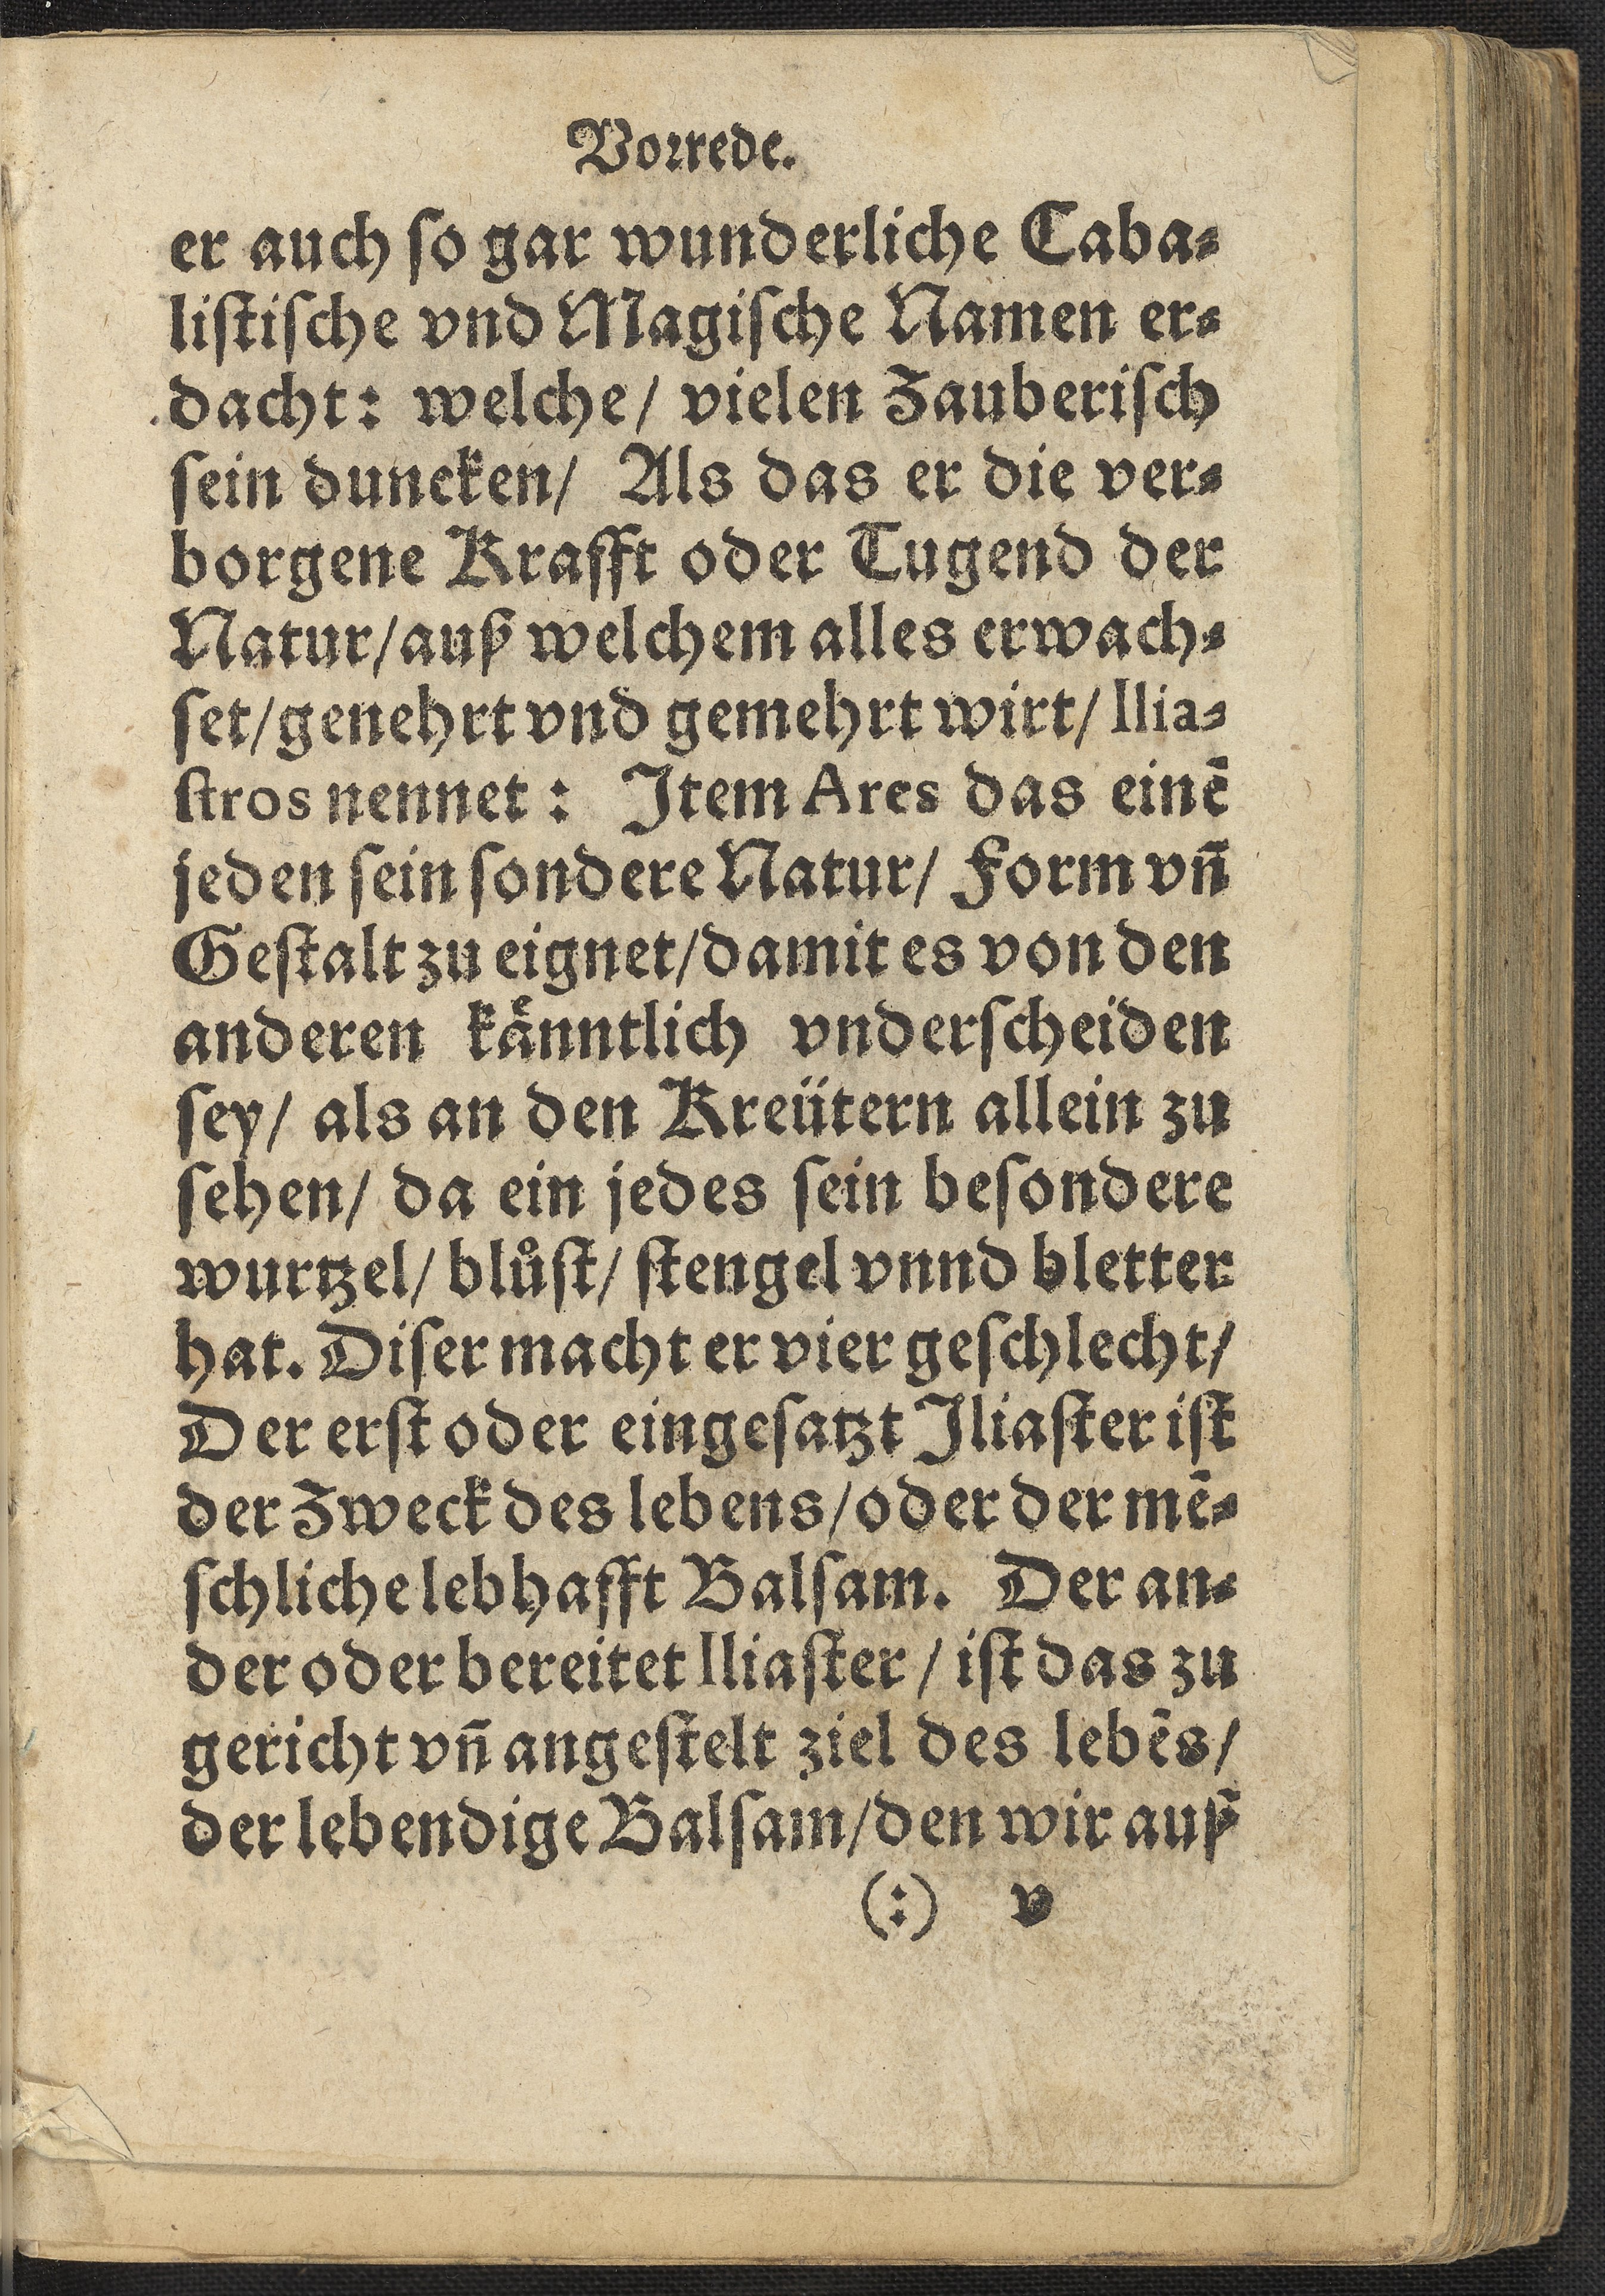 Vorrede.
er auch ſo gar wunderliche Caba⸗
liſtiſche vnd Magiſche Namen er⸗
dacht: welche/ vielen Zauberiſch
ſein duncken/ Als das er die ver⸗
borgene Krafft oder Tugend der
Natur/auß welchem alles erwach⸗
ſet/genehrt vnd gemehrt wirt/ Ilia⸗
ſtros nennet: Item Ares das einē
jeden ſein ſondere Natur/ Form vn̄
Geſtalt zu eignet/damit es von den
anderen kaͤnntlich vnderſcheiden
ſey/ als an den Kreütern allein zu
ſehen/ da ein jedes ſein beſondere
wurtzel/ blůſt/ ſtengel vnnd bletter
hat. Diſer macht er vier geſchlecht/
Der erſt oder eingeſatzt Iliaſter iſt
der Zweck des lebens/oder der mē⸗
ſchliche lebhafft Balſam. Der an⸗
der oder bereitet Iliaſter / iſt das zu
gericht vn̄ angeſtelt ziel des lebēs/
der lebendige Balſam/den wir auß
(:) v